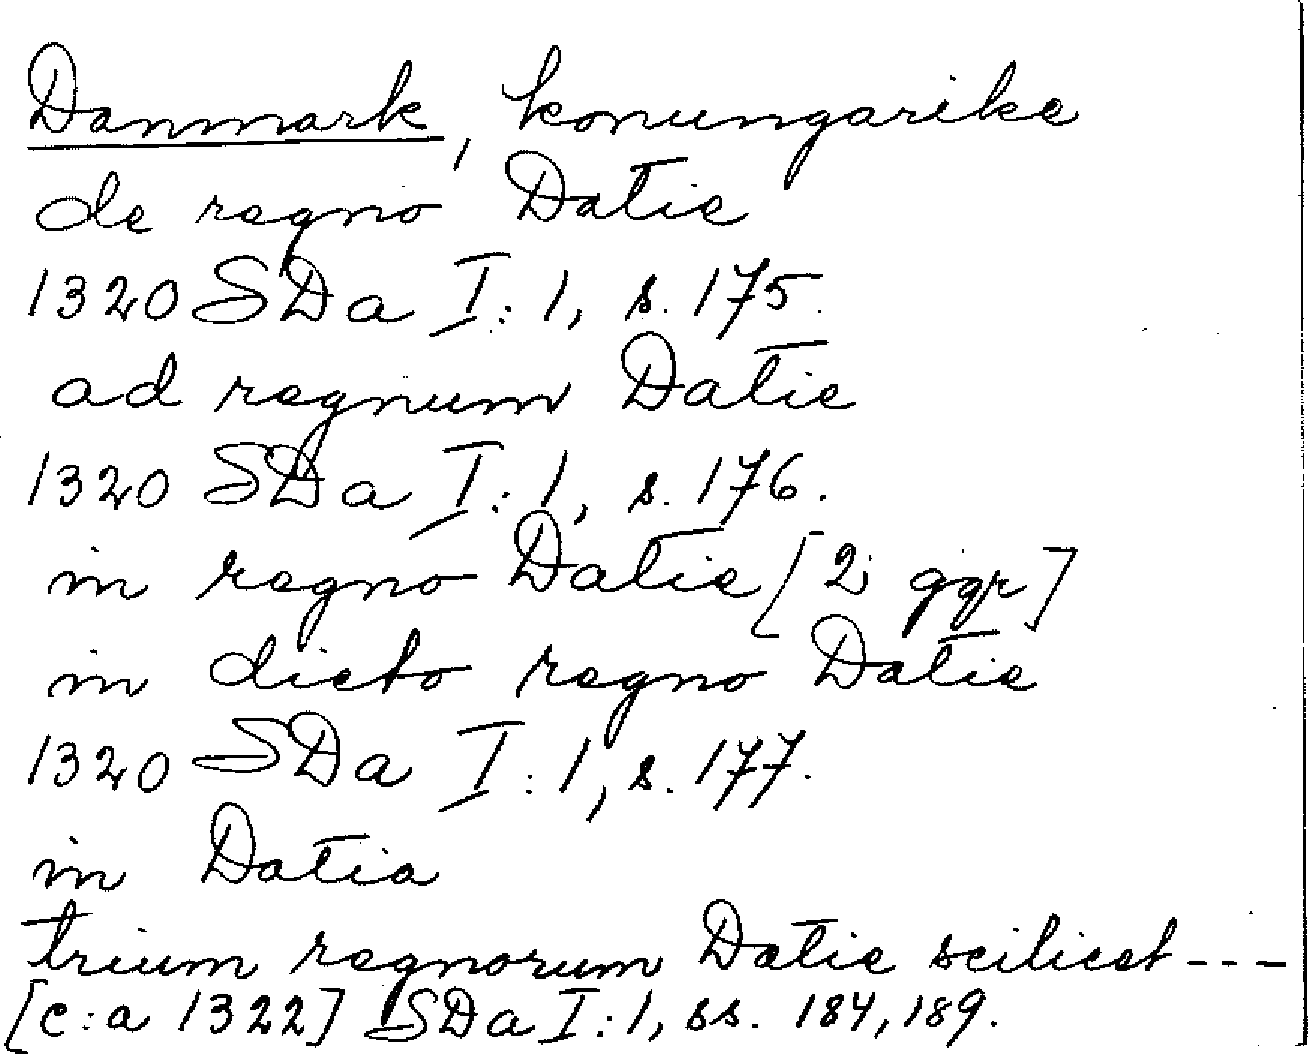 Danmark, konungarike
de regno Datie
1320 SDa I:1, s. 175.
ad regnum Datie
1320 SDa I:1, s. 176.
in regno Datie [2 ggr]
in dicto regno Datie
1320 SDa I:1, s. 177.
in Datia
trium regnorum Datie scilicet ---
[c:a 1322] SDa I:1, ss. 184, 189.